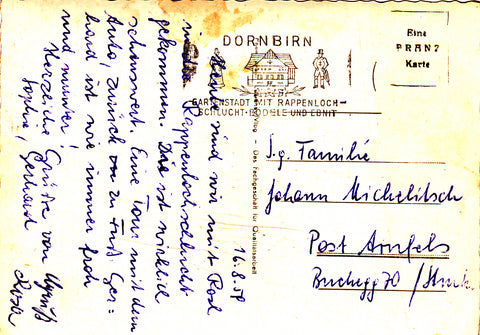 Heute sind wir mit Rad
Rappenlochschlucht
gekommen. Die ist wirklich
sehenswert. Eine Tour mit dem
Auto, zurück zu Fuß Ger=
hard ist wie immer froh
und munter!
Herzliche Grüße von
Sophie, Gerhard
Rosa
16.8.58
DORNBIRN
GARTENSTADT MIT RAPPENLOCH-
SCHLUCHT-BÖDELE UND EBNIT
Verlag - Das Fachgeschäft für Qualitätsarbeit
Eine
PRANZ
Karte
S.g. Familie
Johann Michelitsch
Post Arnfels
Buchegg 70 / Stmk.